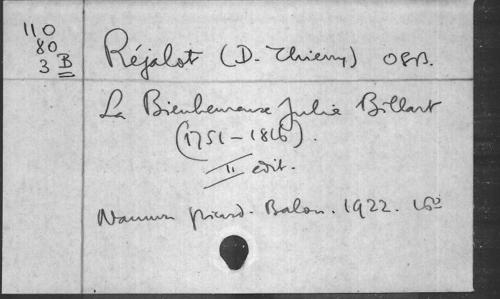 110
80
3 B
Réjalot (D. Thierry) OSB.
La Bienheureuse Julie Billart
(1751-1816).
II edit.
Namur picard. Balon. 1922. 16°